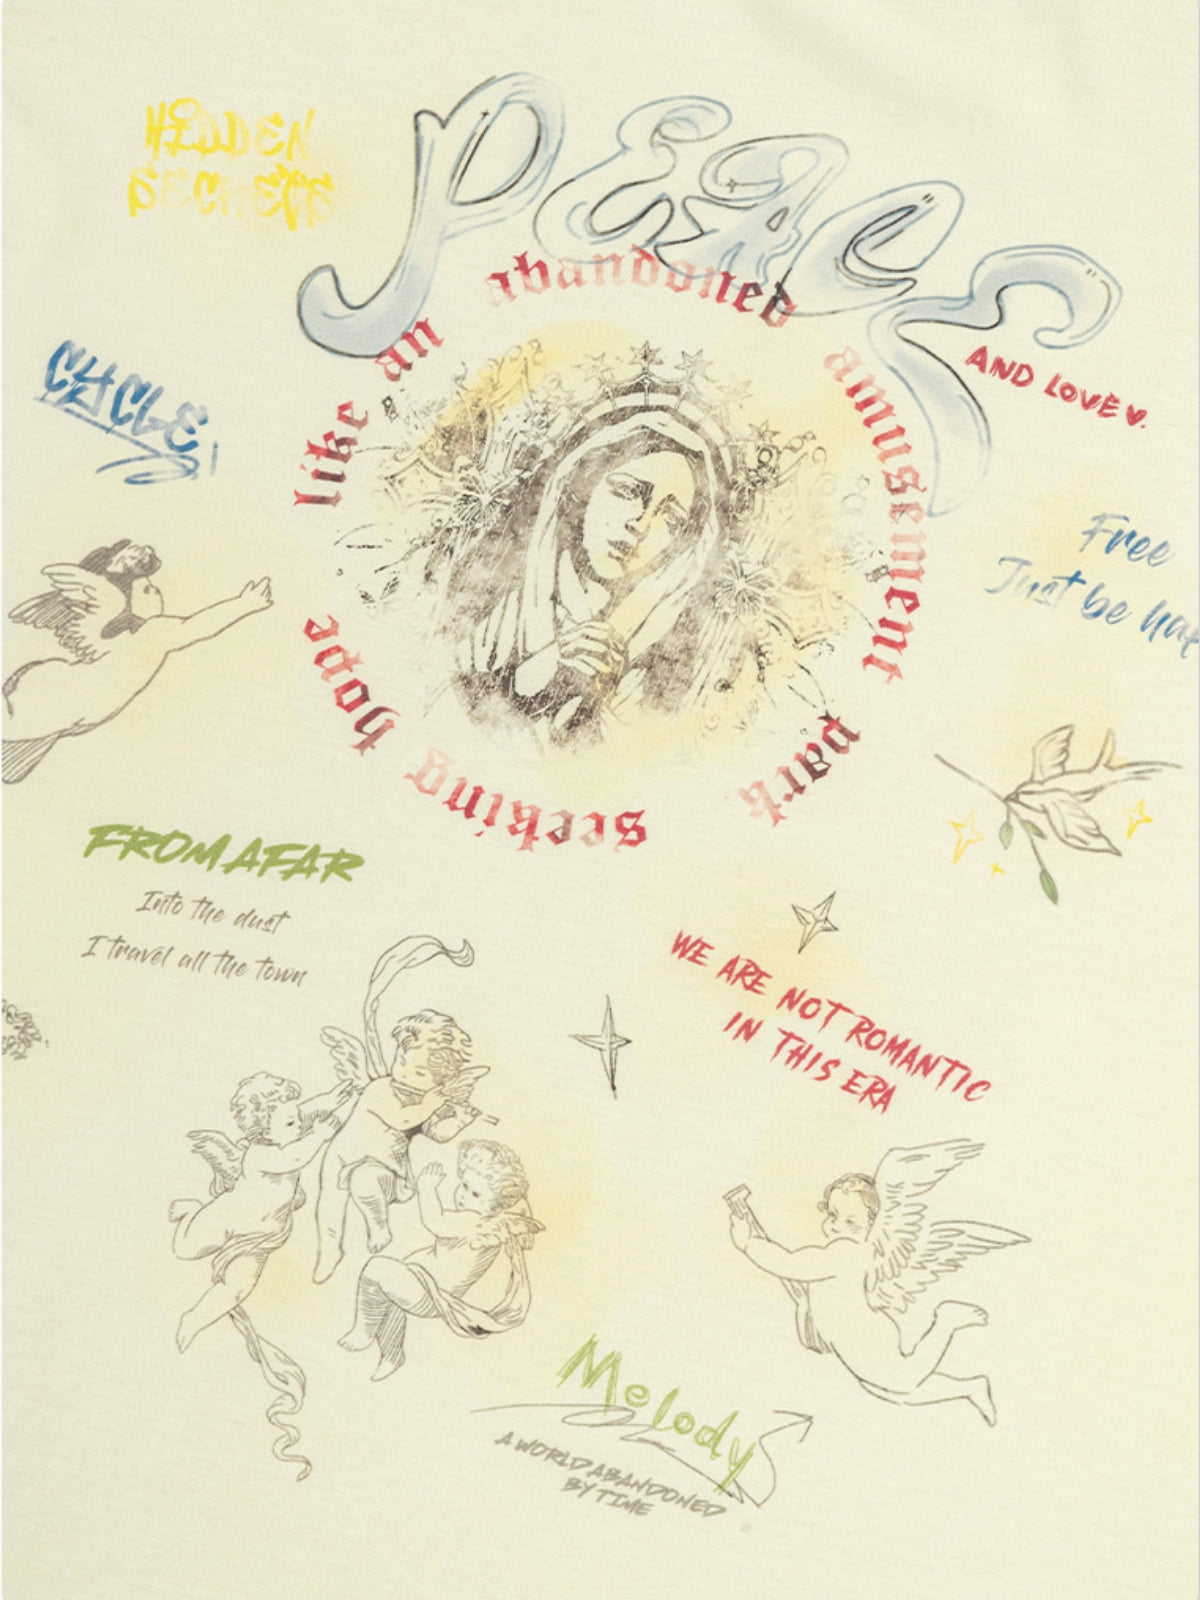 HIDDEN
SECRETS
PEACE
AND LOVE
like an abandoned amusement park seeking hope
CYCLE
Free
Just be hap
FROM AFAR
Into the dust
I travel all the town
WE ARE NOT ROMANTIC
IN THIS ERA
Melody
A WORLD ABANDONED
BY TIME